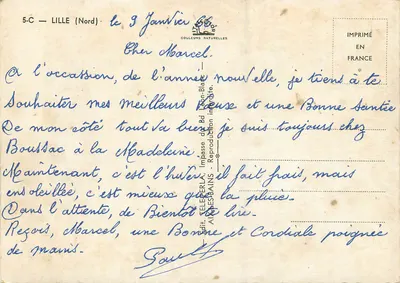 5-C — LILLE (Nord) le 3 Janvier 66
COULEURS NATURELLES
IMPRIMÉ
EN
FRANCE
Cher Marcel.
A l'occasion, de l'année nouvelle, je tiens à te
Souhaiter mes meilleurs Vœux et une Bonne Santée
De mon côté tout va bien je suis toujours chez
Boussac à la Madeleine
Maintenant, c'est l'hiver il fait frais, mais
ensoleillée, c'est mieux que la pluie.
Dans l'attente, de Bientôt te lire.
Reçois, Marcel, une Bonne et Cordiale poignée
de mains.
Impasse du Bd
Reproduction